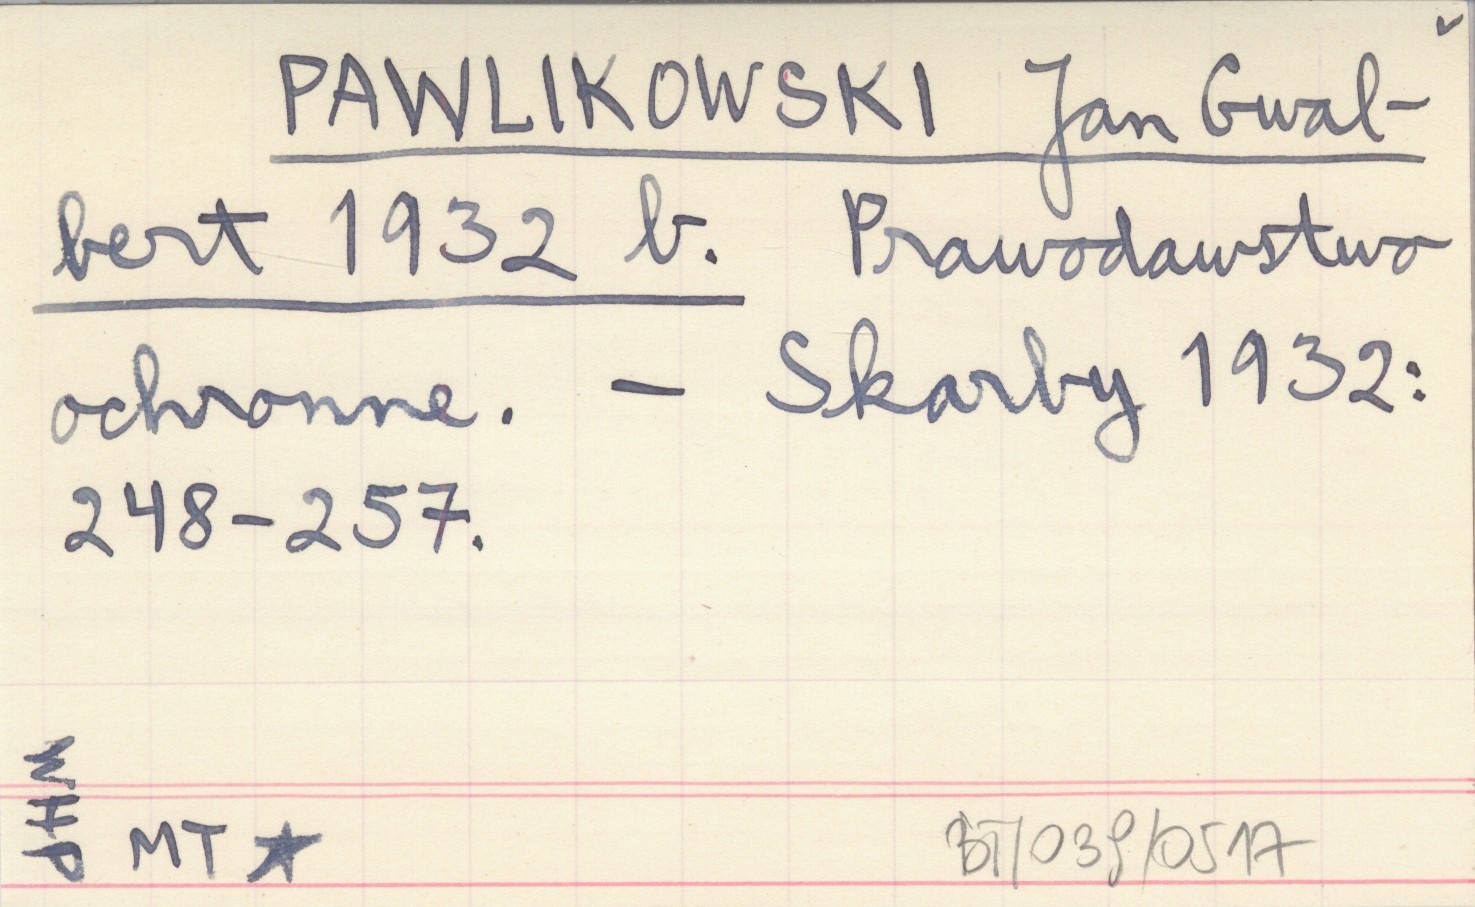 PAWLIKOWSKI Jan Gwal-
bert 1932 b. Prawodawstwo
ochronne. – Skarby 1932:
248-257.
WHP
MT ★
BT/039/0517